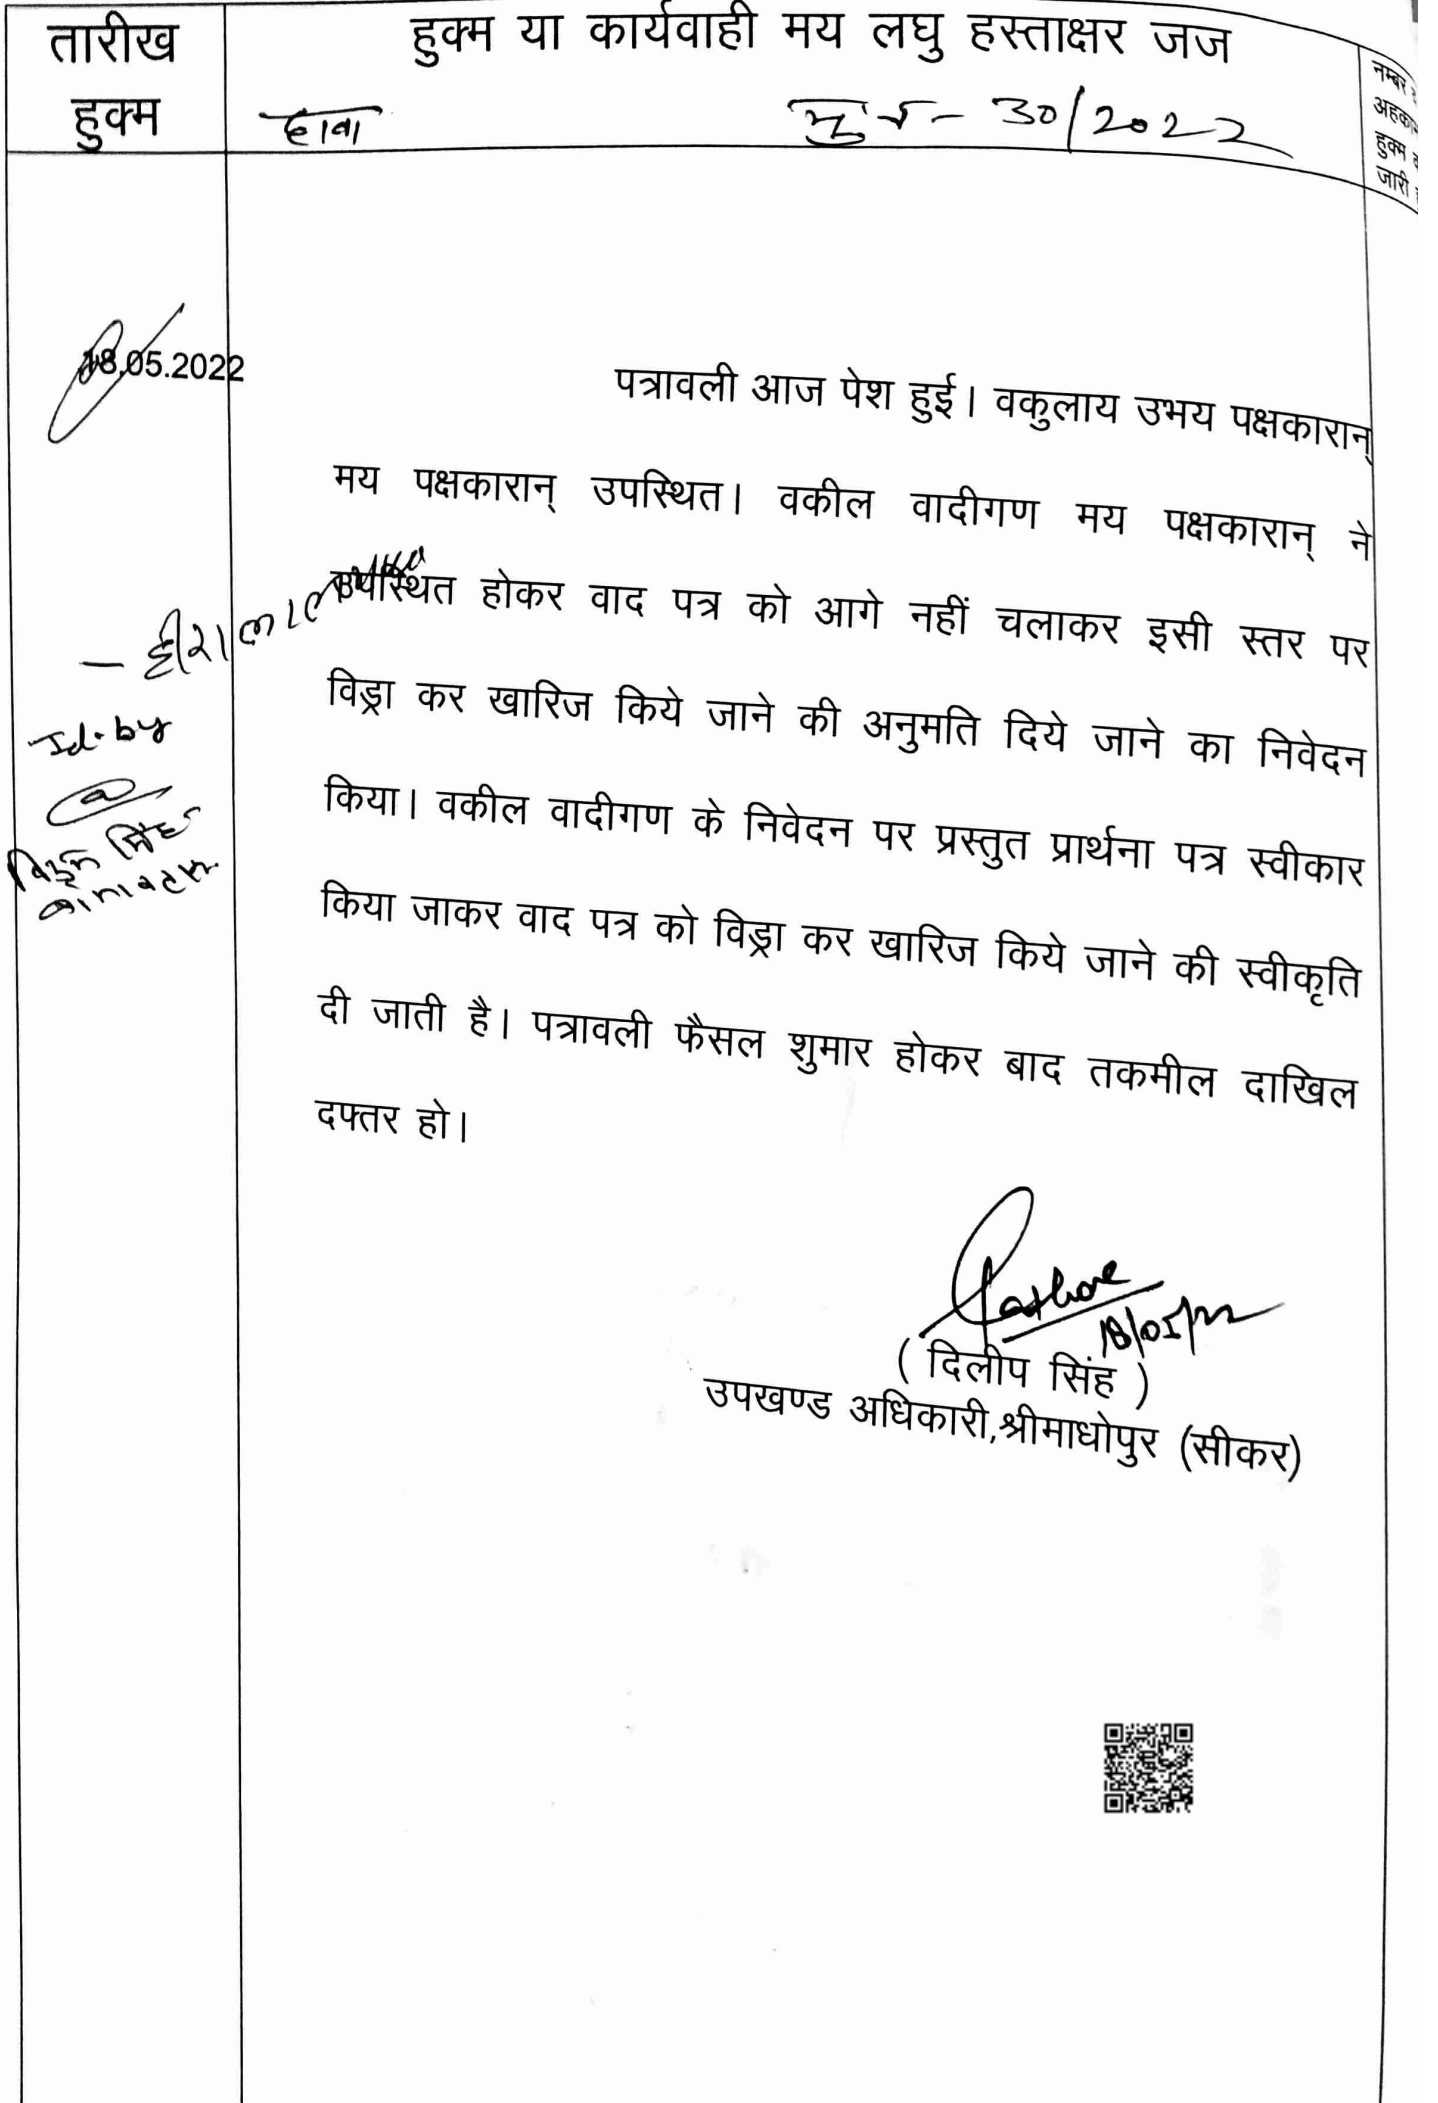 तारीख हुक्म
हुक्म या कार्यवाही मय लघु हस्ताक्षर जज
नम्बर
अहकाम
हुक्म
जारी
दावा
मु नं - 30/2022
18.05.2022
पत्रावली आज पेश हुई। वकुलाय उभय पक्षकारान्
मय पक्षकारान् उपस्थित। वकील वादीगण मय पक्षकारान् ने
उपस्थित होकर वाद पत्र को आगे नहीं चलाकर इसी स्तर पर
विड्रा कर खारिज किये जाने की अनुमति दिये जाने का निवेदन
किया। वकील वादीगण के निवेदन पर प्रस्तुत प्रार्थना पत्र स्वीकार
किया जाकर वाद पत्र को विड्रा कर खारिज किये जाने की स्वीकृति
दी जाती है। पत्रावली फैसल शुमार होकर बाद तकमील दाखिल
दफ्तर हो।
- हीरालाल
Id. by
सिंह
Rathore
18/05/22
( दिलीप सिंह )
उपखण्ड अधिकारी,श्रीमाधोपुर (सीकर)